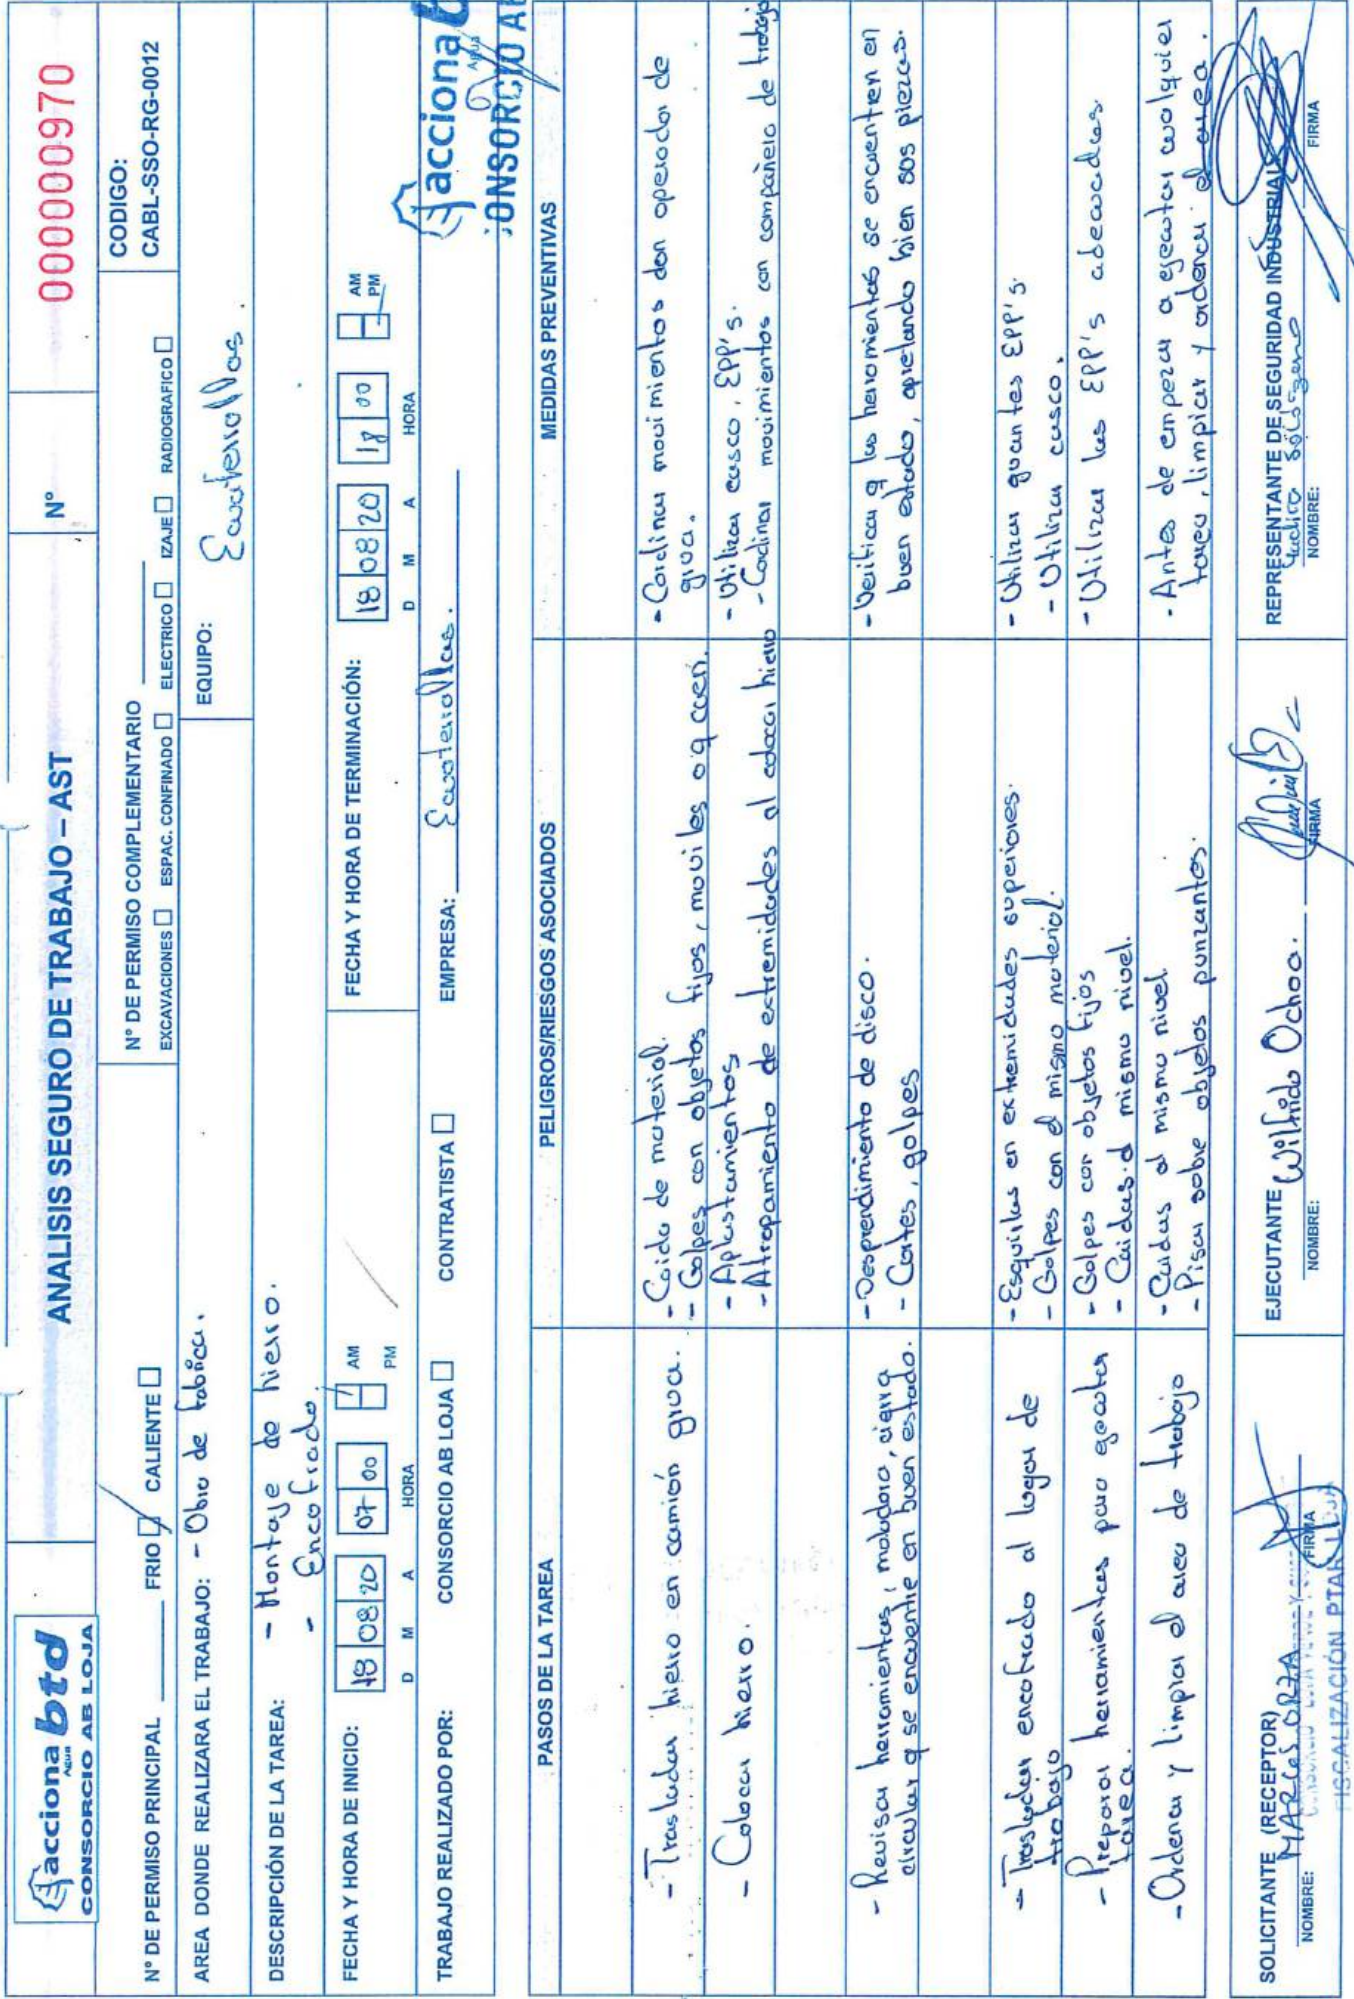 acciona btd
Agua
CONSORCIO AB LOJA
ANALISIS SEGURO DE TRABAJO – AST
N°
000000970
N° DE PERMISO PRINCIPAL
FRIO
CALIENTE
N° DE PERMISO COMPLEMENTARIO
EXCAVACIONES ESPAC. CONFINADO ELECTRICO IZAJE RADIOGRAFICO
CODIGO:
CABL-SSO-RG-0012
AREA DONDE REALIZARA EL TRABAJO: - Obra de fabrica.
EQUIPO:
DESCRIPCIÓN DE LA TAREA: - Montaje de hierro.
- Encofrado.
FECHA Y HORA DE INICIO: 18 08 20 07 00 AM
PM
D M A HORA
FECHA Y HORA DE TERMINACIÓN: 18 08 20 18 00 AM
PM
D M A HORA
TRABAJO REALIZADO POR: CONSORCIO AB LOJA CONTRATISTA EMPRESA:
acciona b
Agua
CONSORCIO AB
PASOS DE LA TAREA
PELIGROS/RIESGOS ASOCIADOS
MEDIDAS PREVENTIVAS
- Trasladar hierro en camión grua.
- Caida de material.
- Golpes con objetos fijos, moviles o q caen.
- Cordinar movimientos con operador de
grua.
- Colocar hierro.
- Aplastamientos
- Atropamiento de extremidades al colocar hierro
- Utilizar casco, EPP's.
- Codinar movimientos con compañero de trabajo
- Revisar herramientas, moladora, cierra
circular q se encuentre en buen estado.
- Desprendimiento de disco.
- Cortes, golpes
- Verificar q las herramientas se encuentren en
buen estado, apretando bien sos piezas.
- Trasladar encofrado al lugar de
trabajo
- Esquirlas en extremidades superiores.
- Golpes con el mismo material.
- Utilizar guantes EPP's.
- Utilizar casco.
- Preparar herramientas para ejecutar
tarea.
- Golpes con objetos fijos
- Caidas al mismo nivel.
- Utilizar las EPP's adecuadas.
- Ordenar y limpiar el area de trabajo
- Caidas al mismo nivel
- Pisar sobre objetos punzantes.
- Antes de empezar a ejecutar cualquier
tarea, limpiar y ordenar el area.
SOLICITANTE (RECEPTOR)
NOMBRE: MARCOS
FIRMA
FISCALIZACIÓN PTAR LOJA
EJECUTANTE
NOMBRE: Wilfrido Ochoa.
FIRMA
REPRESENTANTE DE SEGURIDAD INDUSTRIAL
NOMBRE:
FIRMA